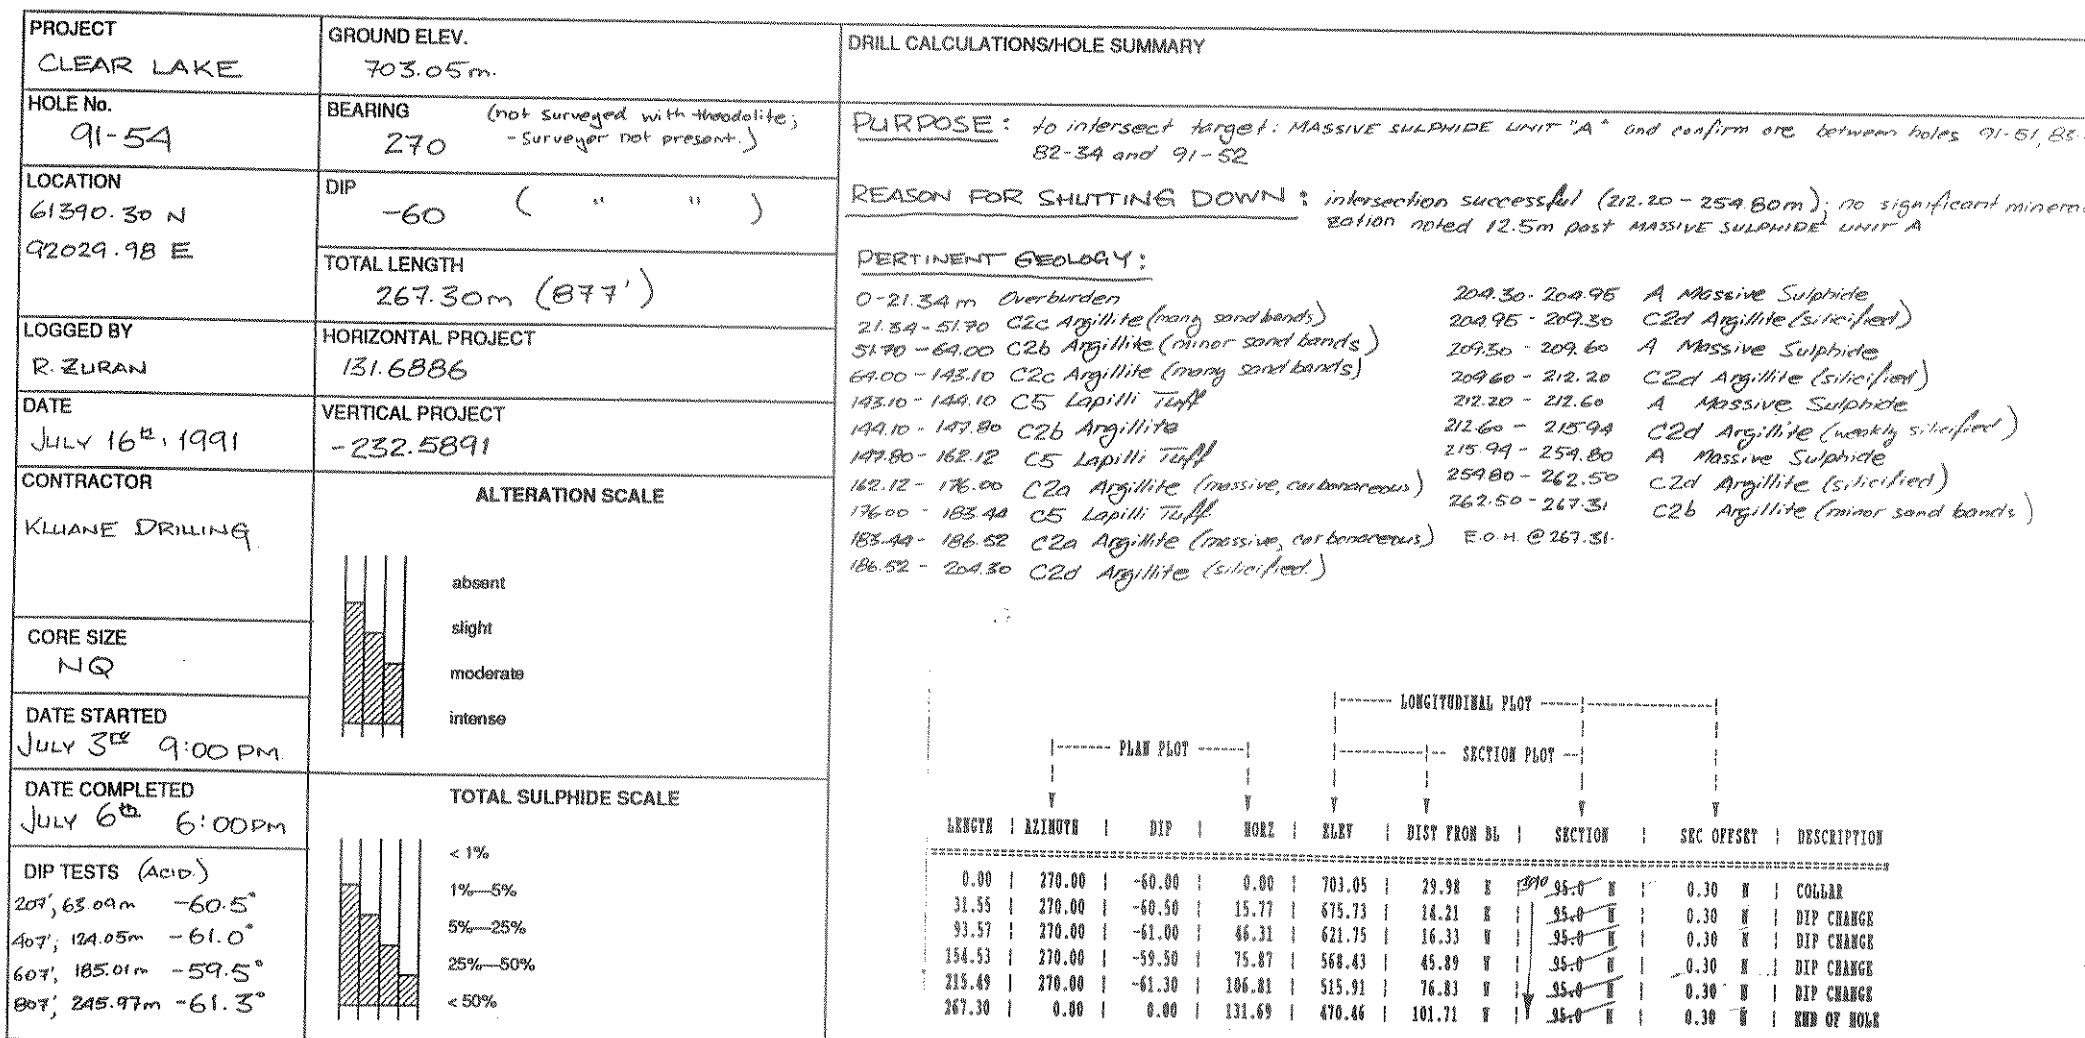 PROJECT
CLEAR LAKE
HOLE No.
91-54
LOCATION
61390.30 N
92029.98 E
LOGGED BY
R. ZURAN
DATE
JULY 16th, 1991
CONTRACTOR
KLUANE DRILLING
CORE SIZE
NQ
DATE STARTED
JULY 3rd 9:00 PM
DATE COMPLETED
JULY 6th 6:00PM
DIP TESTS (ACID.)
207', 63.09m -60.5°
407'; 124.05m -61.0°
607', 185.01m -59.5°
807', 245.97m -61.3°
GROUND ELEV.
703.05m.
BEARING (not surveyed with theodolite;
270 -surveyor not present.)
DIP
-60 ( " " )
TOTAL LENGTH
267.30m (877')
HORIZONTAL PROJECT
131.6886
VERTICAL PROJECT
-232.5891
ALTERATION SCALE
absent
slight
moderate
intense
TOTAL SULPHIDE SCALE
< 1%
1%—5%
5%—25%
25%—50%
< 50%
DRILL CALCULATIONS/HOLE SUMMARY
PURPOSE: to intersect target: MASSIVE SULPHIDE UNIT "A" and confirm ore between holes 91-51, 83-
82-34 and 91-52
REASON FOR SHUTTING DOWN: intersection successful (212.20 - 254.80m); no significant minerali
zation noted 12.5m past MASSIVE SULPHIDE UNIT A
PERTINENT GEOLOGY:
0-21.34m Overburden
21.34-51.70 C2c Argillite (many sand bands)
51.70-64.00 C2b Argillite (minor sand bands)
64.00-143.10 C2c Argillite (many sand bands)
143.10-144.10 C5 Lapilli Tuff
144.10-147.80 C2b Argillite
147.80-162.12 C5 Lapilli Tuff
162.12-176.00 C2a Argillite (massive, carbonaceous)
176.00-183.44 C5 Lapilli Tuff
183.44-186.52 C2a Argillite (massive, carbonaceous)
186.52-204.30 C2d Argillite (silicified.)
204.30-204.95 A Massive Sulphide
204.95-209.30 C2d Argillite (silicified)
209.30-209.60 A Massive Sulphide
209.60-212.20 C2d Argillite (silicified)
212.20-212.60 A Massive Sulphide
212.60-215.94 C2d Argillite (weakly silicified)
215.94-254.80 A Massive Sulphide
254.80-262.50 C2d Argillite (silicified)
262.50-267.31 C2b Argillite (minor sand bands)
E.O.H. @ 267.31.
|------- LONGITUDINAL PLOT -----|---------------|
|------- PLAN PLOT ------| |-----------|-- SECTION PLOT --|
LENGTH | AZIMUTH | DIP | HORZ | ELEV | DIST FROM BL | SECTION | SEC OFFSET | DESCRIPTION
0.00 | 270.00 | -60.00 | 0.00 | 703.05 | 29.98 E | 390 95.0 N | 0.30 N | COLLAR
31.55 | 270.00 | -60.50 | 15.77 | 675.73 | 14.21 E | 95.0 N | 0.30 N | DIP CHANGE
93.57 | 270.00 | -61.00 | 46.31 | 621.75 | 16.33 W | 95.0 N | 0.30 N | DIP CHANGE
154.53 | 270.00 | -59.50 | 75.87 | 568.43 | 45.89 W | 95.0 N | 0.30 N | DIP CHANGE
215.49 | 270.00 | -61.30 | 106.81 | 515.91 | 76.83 W | 95.0 N | 0.30 N | DIP CHANGE
267.30 | 0.00 | 0.00 | 131.69 | 470.46 | 101.71 W | 95.0 N | 0.30 N | END OF HOLE